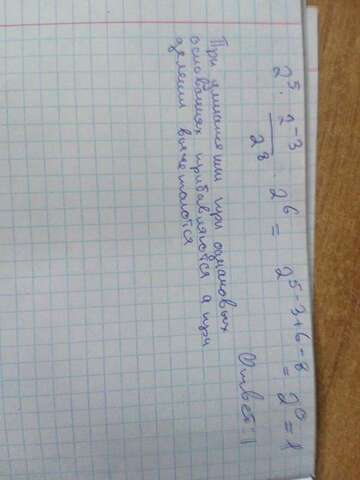 2⁵ · 2⁻³/2⁸ · 2⁶ = 2⁵⁻³⁺⁶⁻⁸ = 2⁰ = 1
Ответ: 1
При умножении при одинаковых
основаниях прибавляются а при
делении вычетаются